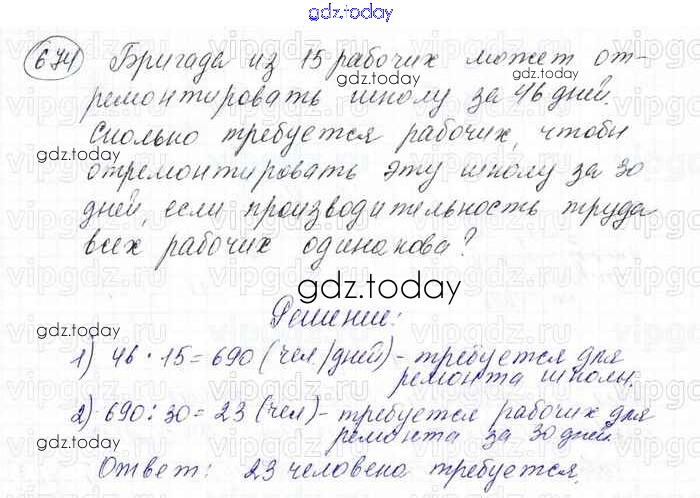 gdz.today
674 Бригада из 15 рабочих может от-
ремонтировать школу за 46 дней.
Сколько требуется рабочих, чтобы
gdz.today
отремонтировать эту школу за 30
дней, если производительность труда
всех рабочих одинакова?
gdz.today
Решение:
gdz.today
1) 46 · 15 = 690 (чел/дней) - требуется для
ремонта школы.
2) 690 : 30 = 23 (чел) - требуется рабочих для
gdz.today
ремонта за 30 дней.
Ответ: 23 человека требуется.
gdz.today